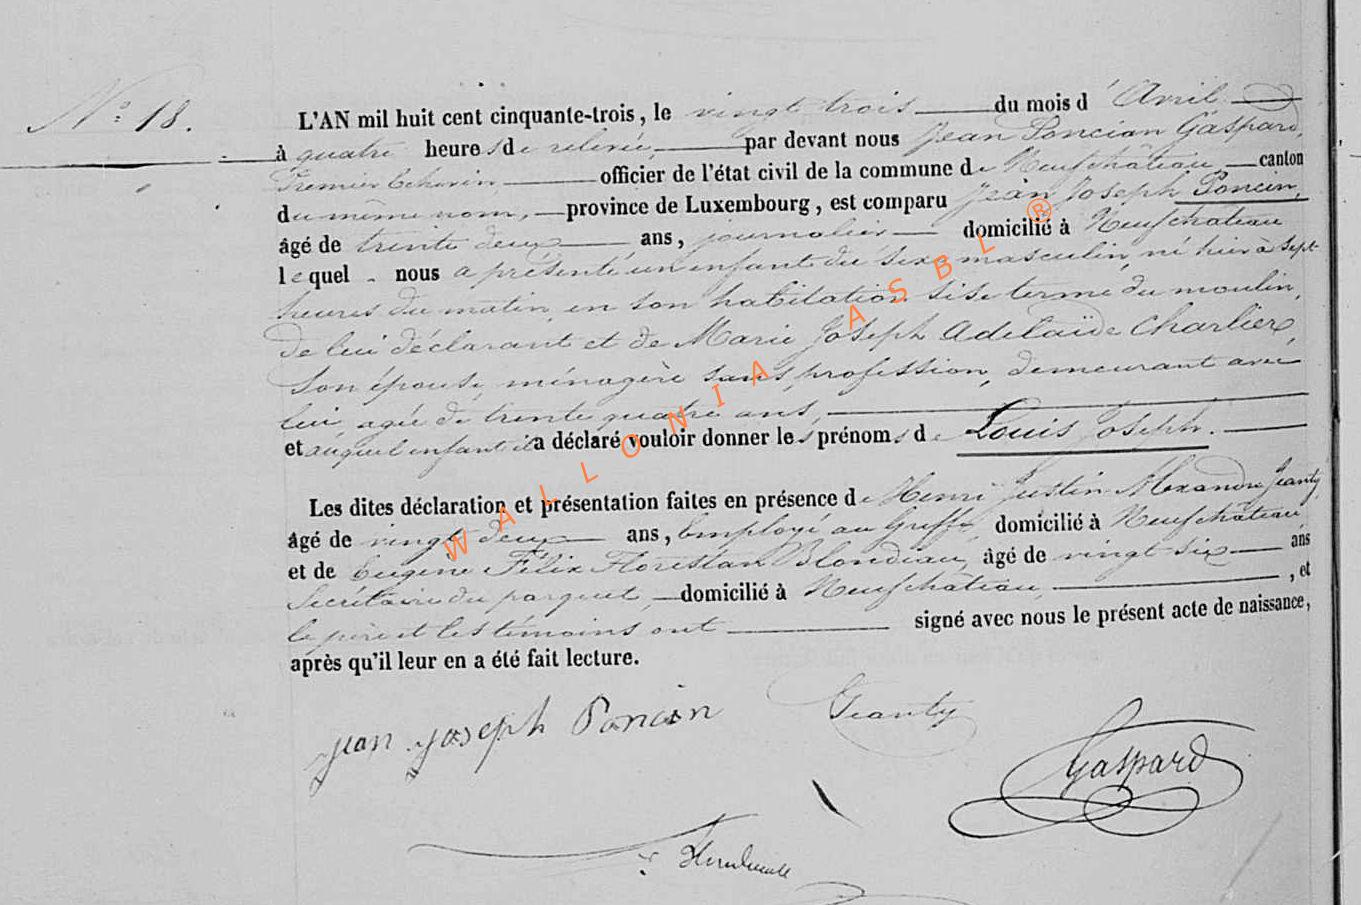 N° 18.
L'AN mil huit cent cinquante-trois, le vingt trois du mois d'Avril
à quatre heures de relevée, par devant nous Jean Poncian Gaspard,
Premier Echevin officier de l'état civil de la commune de Neufchâteau canton
du même nom, province de Luxembourg, est comparu Jean Joseph Poncin,
âgé de trente deux ans, journalier domicilié à Neufchateau
lequel nous a présenté un enfant du sexe masculin, né hier à sept
heures du matin, en son habitation sise terme du moulin,
de lui déclarant et de Marie Joseph Adelaïde Charlier,
son épouse, ménagère sans profession, demeurant avec
lui, agée de trente quatre ans,
et auquel enfant il a déclaré vouloir donner les prénoms de Louis Joseph.
Les dites déclaration et présentation faites en présence de Henri Justin Alexandre Jeanty
âgé de vingt deux ans, Employé au Greffe, domicilié à Neufchâteau,
et de Eugene Félix Florestan Blondiau, âgé de vingt six ans
Secrétaire du parquet, domicilié à Neufchâteau, , et
le père et les témoins ont signé avec nous le présent acte de naissance,
après qu'il leur en a été fait lecture.
jean joseph Poncin Jeanty
Gaspard
WALLONIA ASBL ®